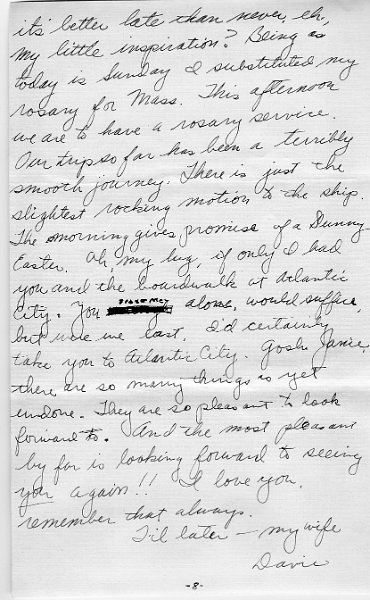 it's better late than never, eh,
my little inspiration? Being as
today is Sunday I substituted my
rosary for Mass. This afternoon
we are to have a rosary service.
Our trip so far has been a terribly
smooth journey. There is just the
slightest rocking motion to the ship.
The morning gives promise of a Sunny
Easter. Ah, my lug, if only I had
you and the boardwalk at Atlantic
City. You alone, would suffice,
but were we east, I'd certainly
take you to Atlantic City. Gosh Janie,
there are so many things as yet
undone. They are so pleasant to look
forward to. And the most pleasant
by far is looking forward to seeing
you again!! I love you,
remember that always.
Til later — my wife
Davie
-8-